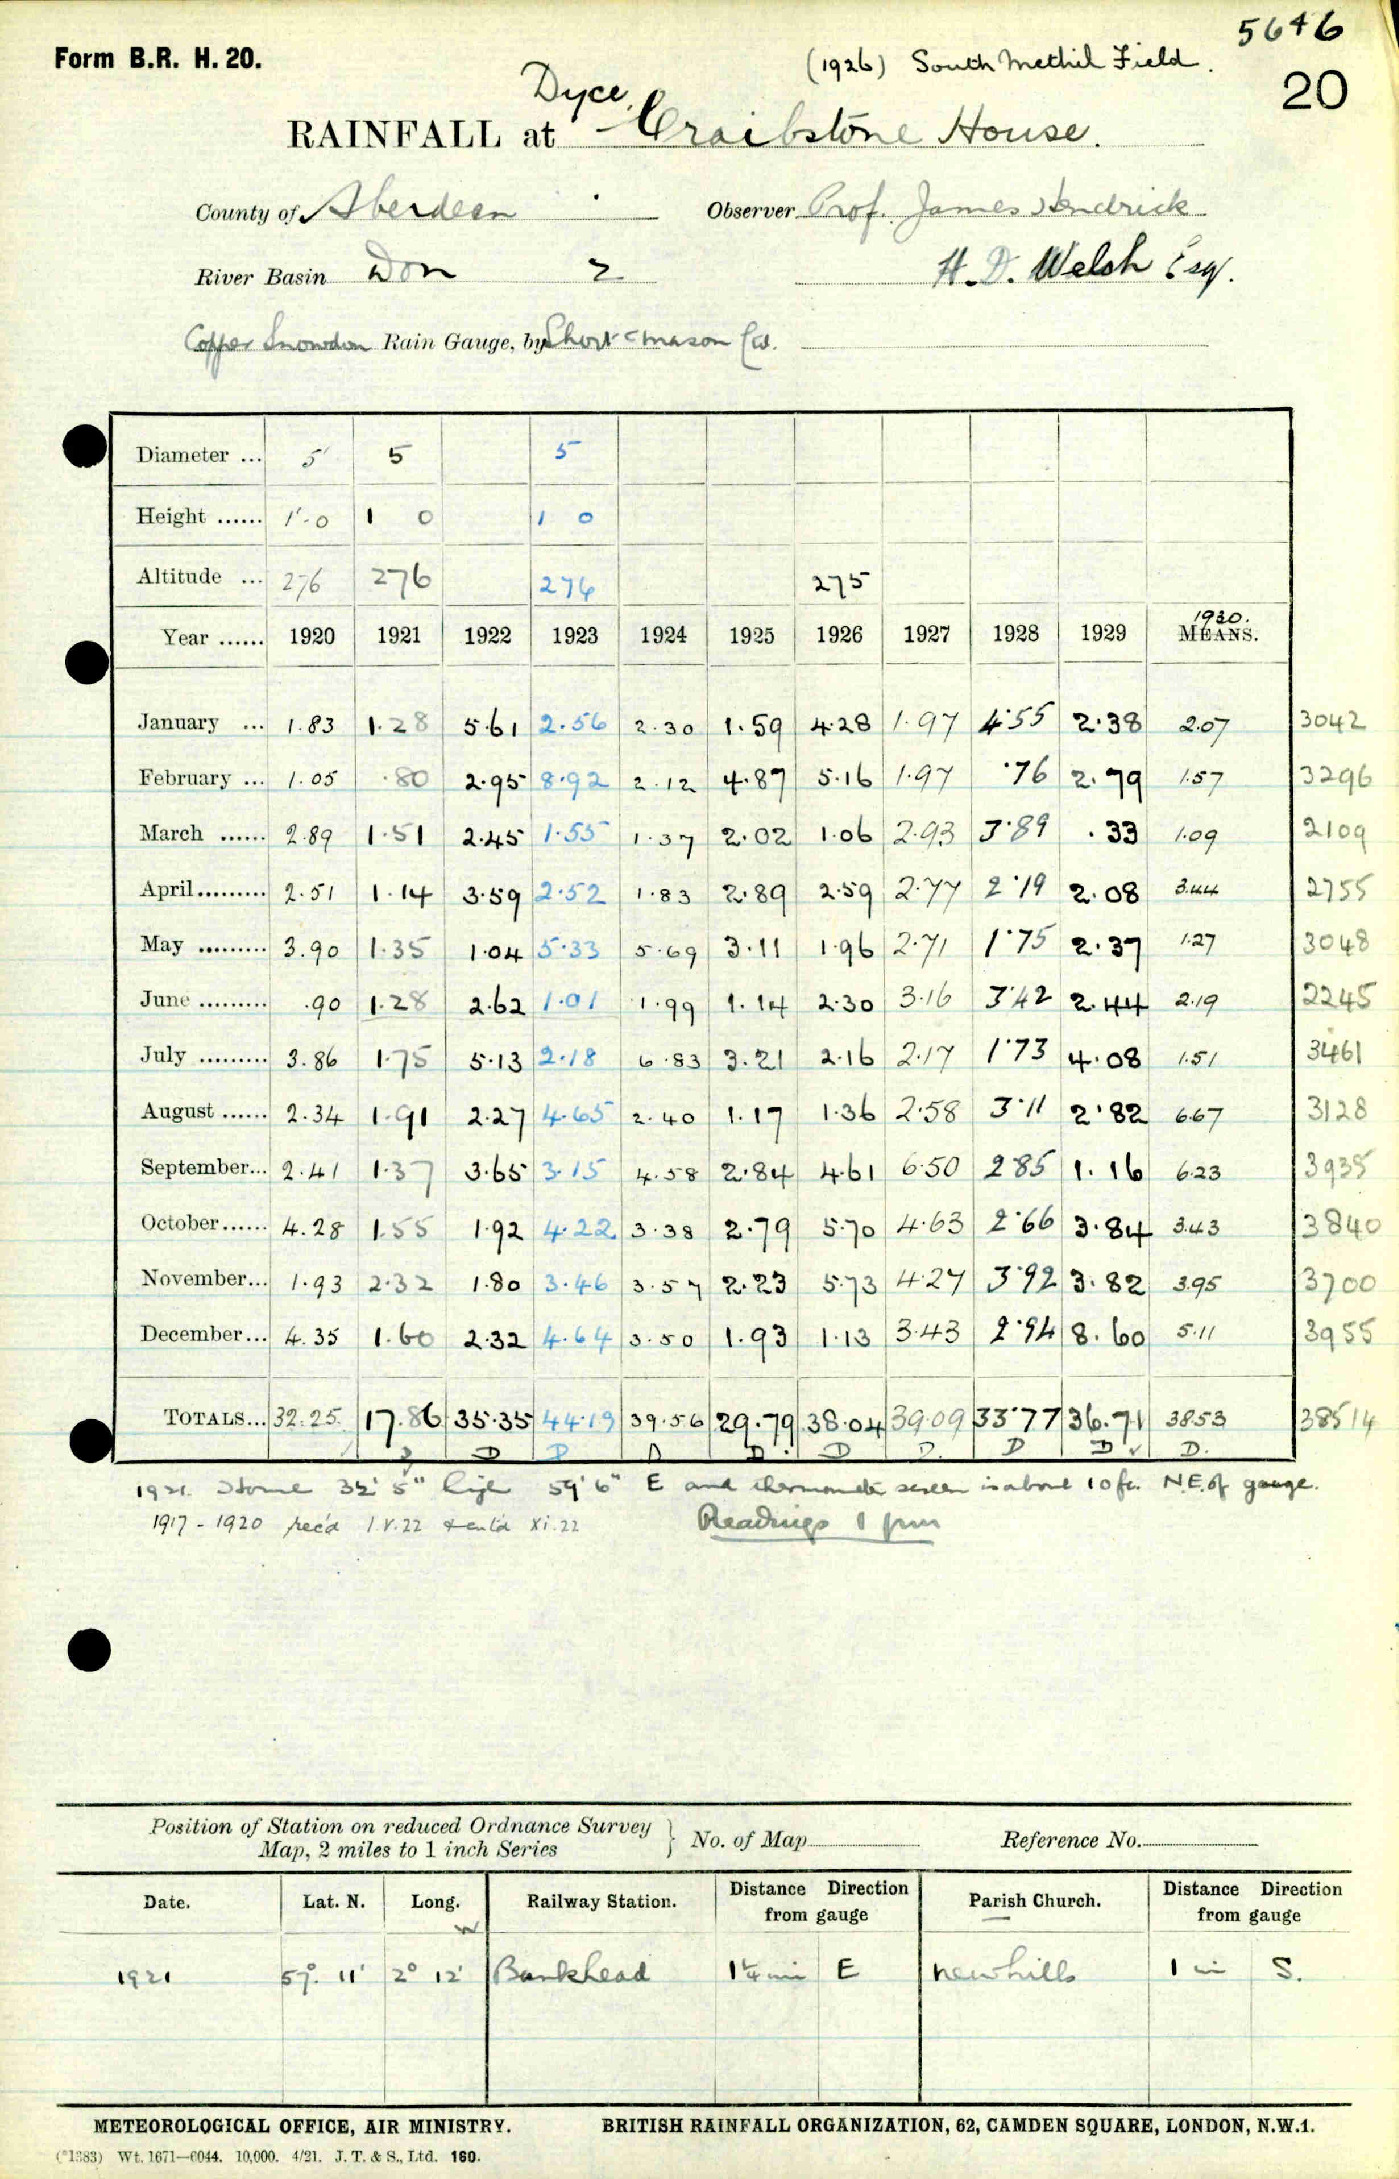 5646
Form B.R. H. 20.
(1926) South Methil Field.
20
Dyce,
RAINFALL at Craibstone House.
County of Aberdeen
Observer Prof. James Hendrick
River Basin Don 2
H. D. Welsh Esq.
Copper Snowdon Rain Gauge, by Short & Mason Ltd.
Diameter ... 5 5 5
Height ...... 1.0 1 0 1 0
Altitude ... 276 276 276 275
1930.
Year ...... 1920 1921 1922 1923 1924 1925 1926 1927 1928 1929 MEANS.
January ... 1.83 1.28 5.61 2.56 2.30 1.59 4.28 1.97 4.55 2.38 2.07 3042
February ... 1.05 .80 2.95 8.92 2.12 4.87 5.16 1.97 .76 2.79 1.57 3296
March ...... 2.89 1.51 2.45 1.55 1.37 2.02 1.06 2.93 3.89 .33 1.09 2109
April......... 2.51 1.14 3.59 2.52 1.83 2.89 2.59 2.77 2.19 2.08 3.44 2755
May ......... 3.90 1.35 1.04 5.33 5.69 3.11 1.96 2.71 1.75 2.37 1.27 3048
June ......... .90 1.28 2.62 1.01 1.99 1.14 2.30 3.16 3.42 2.44 2.19 2245
July ......... 3.86 1.75 5.13 2.18 6.83 3.21 2.16 2.17 1.73 4.08 1.51 3461
August ...... 2.34 1.91 2.27 4.65 2.40 1.17 1.36 2.58 3.11 2.82 6.67 3128
September... 2.41 1.37 3.65 3.15 4.58 2.84 4.61 6.50 2.85 1.16 6.23 3935
October...... 4.28 1.55 1.92 4.22 3.38 2.79 5.70 4.63 2.66 3.84 3.43 3840
November... 1.93 2.32 1.80 3.46 3.57 2.23 5.73 4.27 3.92 3.82 3.95 3700
December... 4.35 1.60 2.32 4.64 3.50 1.93 1.13 3.43 2.94 8.60 5.11 3955
TOTALS... 32.25 17.86 35.35 44.19 39.56 29.79 38.04 39.09 33.77 36.71 38.53 38514
D D D D D D D D D D.
1921. 32' 5" high 59' 6" E and thermometer screen is about 10 ft. N.E. of gauge.
1917 - 1920 rec'd 1.V.22 & ent'd XI.22
Readings 1 pm
Position of Station on reduced Ordnance Survey Map, 2 miles to 1 inch Series } No. of Map
Reference No.
Date. Lat. N. Long. W Railway Station. Distance Direction from gauge Parish Church. Distance Direction from gauge
1921 57° 11' 2° 12' Bankhead 1¼ mi E Newhills 1 mi S.
METEOROLOGICAL OFFICE, AIR MINISTRY.
BRITISH RAINFALL ORGANIZATION, 62, CAMDEN SQUARE, LONDON, N.W.1.
(*1383) Wt. 1671—6044. 10,000. 4/21. J. T. & S., Ltd. 160.